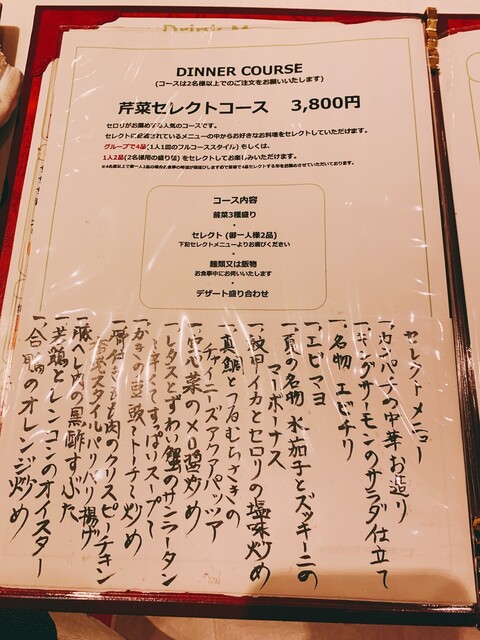 DINNER COURSE
(コースは2名様以上でのご注文をお願いいたします)
芹菜セレクトコース 3,800円
セロリがお薦めする人気のコースです。
セレクトに記載されているメニューの中からお好きなお料理をセレクトしていただけます。
グループで4品(1人1皿のフルコーススタイル)もしくは、
1人2品(2名様用の盛り皿)をセレクトしてお楽しみいただけます。
コース内容
前菜3種盛り
・
セレクト (御一人様2品)
下記セレクトメニューよりお選びください
・
麺類又は飯物
お食事中にお伺いいたします
・
デザート盛り合わせ
セレクトメニュー
一、カンパチの中華お造り
キングサーモンのサラダ仕立て
一、名物 エビチリ
一、エビマヨ
一、夏の名物 水茄子とズッキーニの
マーボーナス
一、紋甲イカとセロリの塩味炒め
一、真鯛とつるむらさきの
チャイニーズアクアパッツァ
一、空心菜のXO醤炒め
一、レタスとずわい蟹のサンラータン
辛くてすっぱいスープ
一、かきの豆鼓トーチ炒め
一、骨付きもも肉のクリスピーチキン
スタイルパリパリ揚げ
一、豚ヘレ肉の黒酢すぶた
一、若鶏とレンコンのオイスター
一、合鴨のオレンジ炒め